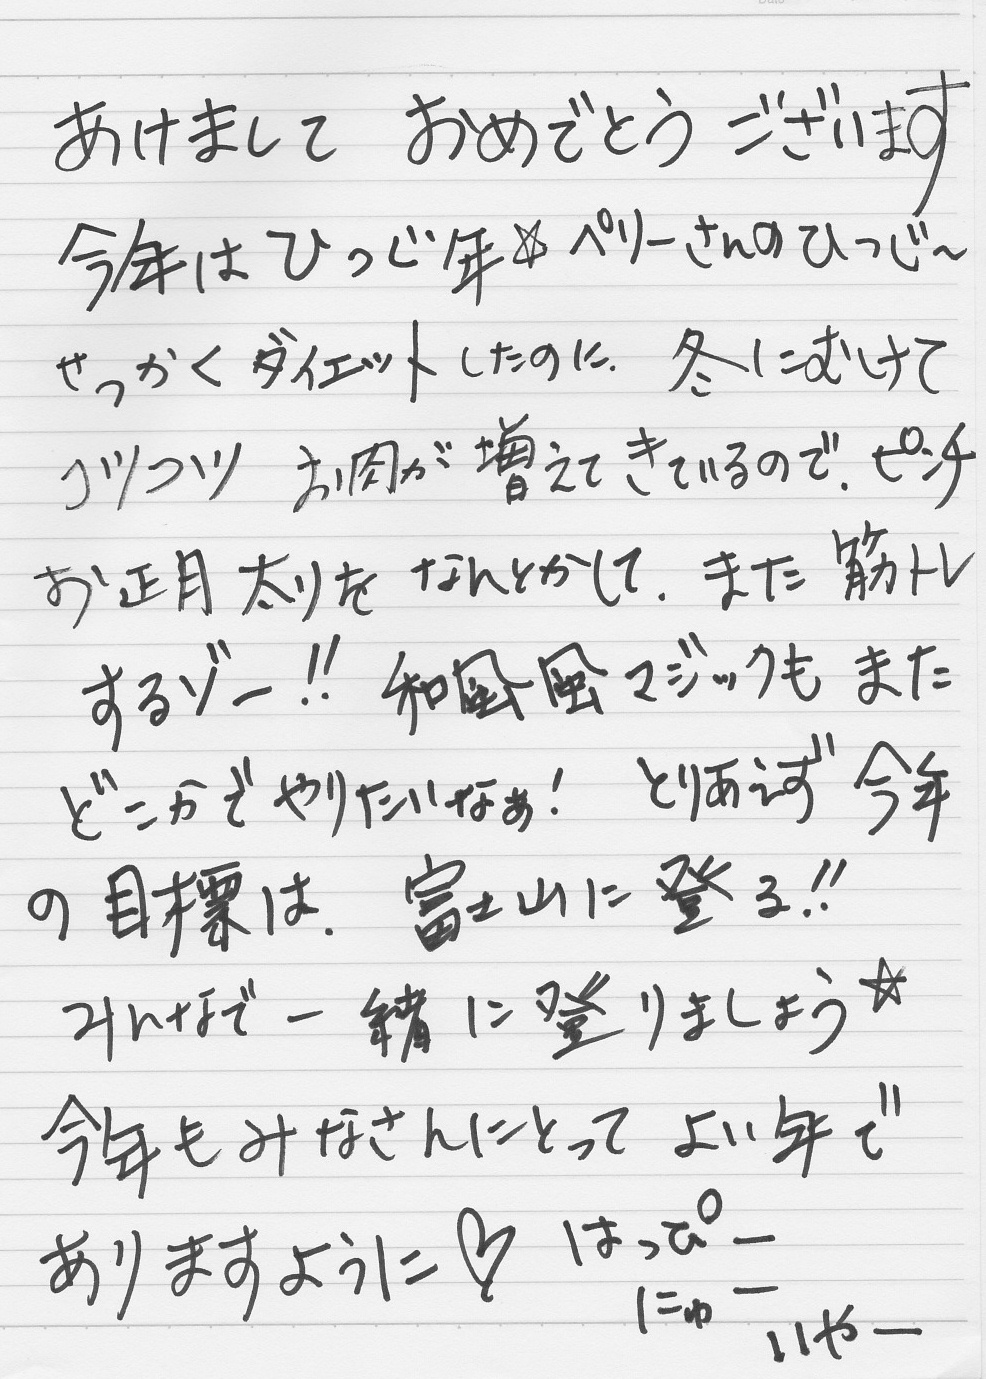 あけまして おめでとう ございます
今年は ひつじ年☆ ペリーさんのひつじ〜
せっかく ダイエットしたのに. 冬にむけて
コツコツ お肉が 増えてきているので. ピンチ
お正月 太りを なんとかして. また 筋トレ
するゾー!! 和風風マジックも また
どこかで やりたいなぁ! とりあえず 今年
の 目標は. 富士山に 登る!!
みんなで 一緒に 登りましょう☆
今年も みなさんにとって よい年で
ありますように♡ はっぴー
にゅー
いやー